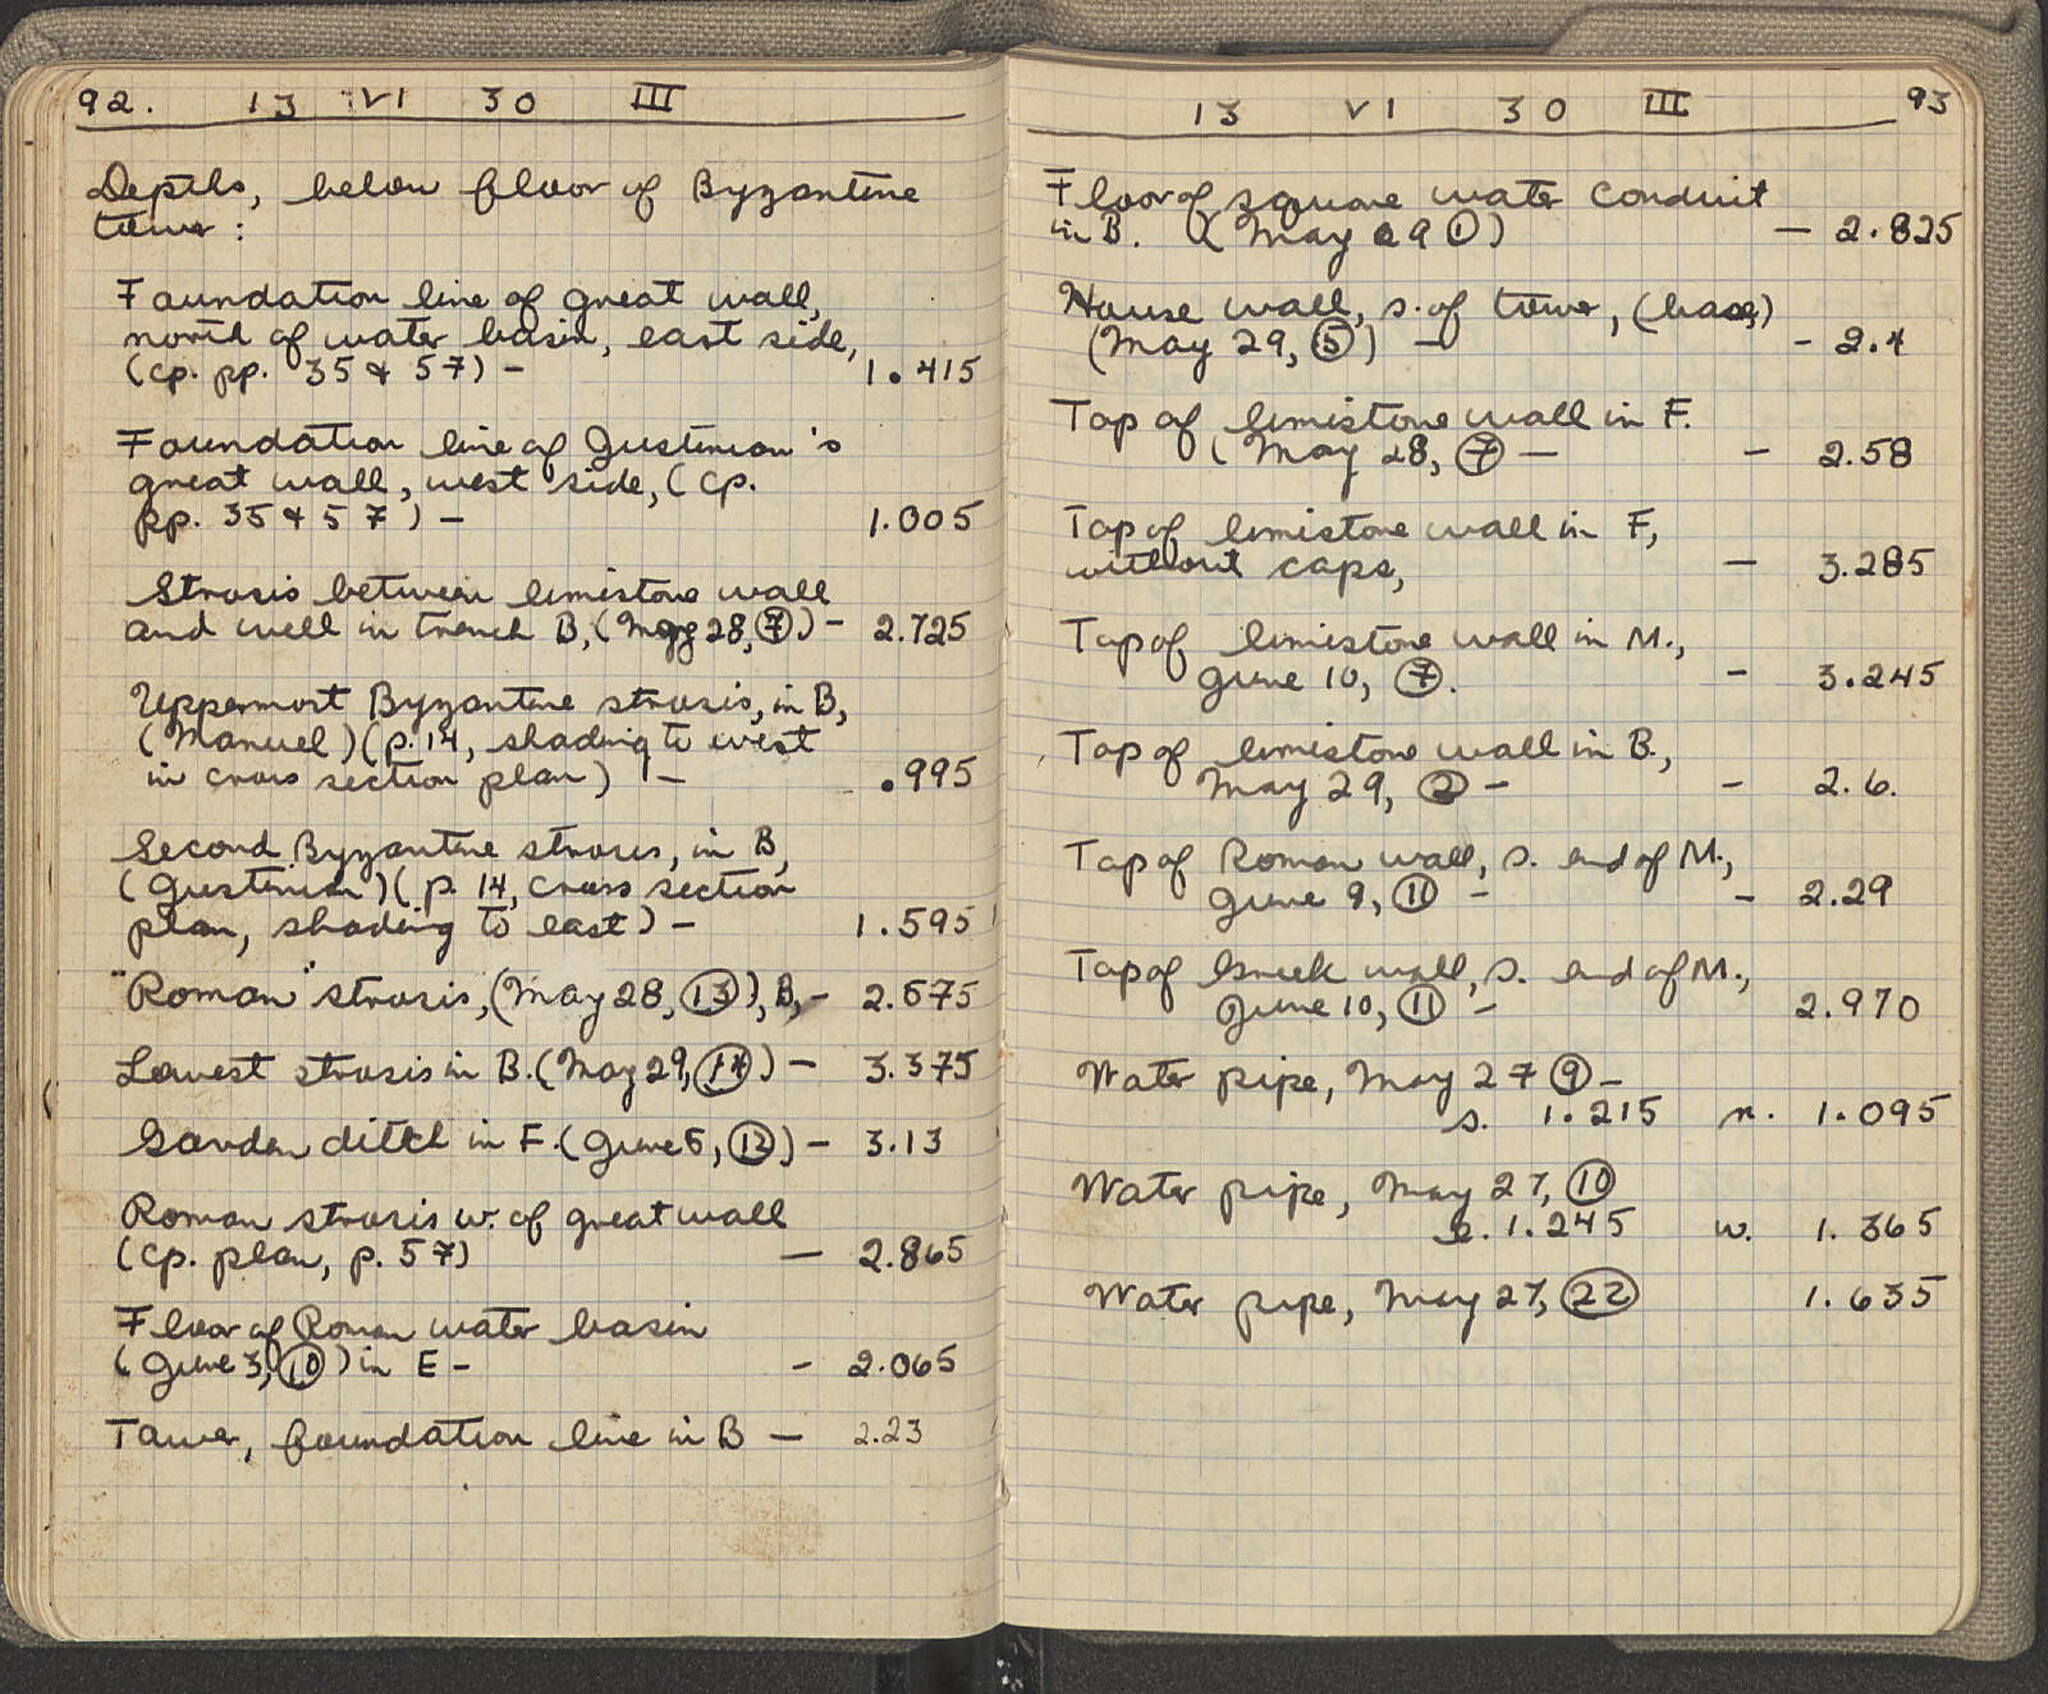 92. 13 VI 30 III
Depths, below floor of Byzantine
tower:
Foundation line of great wall,
north of water basin, east side,
(cp. pp. 35 & 57) - 1.415
Foundation line of Justinian's
great wall, west side, (cp.
pp. 35 & 57) - 1.005
Strosis between limestone wall
and well in trench B, (May 28, ⑦) - 2.725
Uppermost Byzantine strosis, in B,
(Manuel) (p. 14, shading to west
in cross section plan) - .995
Second Byzantine strosis, in B,
(Justinian) (p. 14, cross section
plan, shading to east) - 1.595
"Roman" strosis, (May 28, ⑬), B, - 2.675
Lowest strosis in B. (May 29, ⑭) - 3.375
Garden ditch in F. (June 5, ⑫) - 3.13
Roman strosis w. of great wall
(cp. plan, p. 57) - 2.865
Floor of Roman water basin
(June 3, ⑩) in E - - 2.065
Tower, foundation line in B - 2.23
13 VI 30 III 93
Floor of square water conduit
in B. (May 29 ①) - 2.825
House wall, s. of tower, (base)
(May 29, ⑤) - - 2.4
Top of limestone wall in F.
(May 28, ⑦ - - 2.58
Top of limestone wall in F,
without caps, - 3.285
Top of limestone wall in M.,
June 10, ⑦. - 3.245
Top of limestone wall in B.,
May 29, ② - - 2.6.
Top of Roman wall, s. end of M.,
June 9, ⑪ - - 2.29
Top of Greek wall, s. end of M.,
June 10, ⑪ - 2.970
Water pipe, May 27 ⑨ -
s. 1.215 n. 1.095
Water pipe, May 27, ⑩
e. 1.245 w. 1.365
Water pipe, May 27, ㉒ 1.635